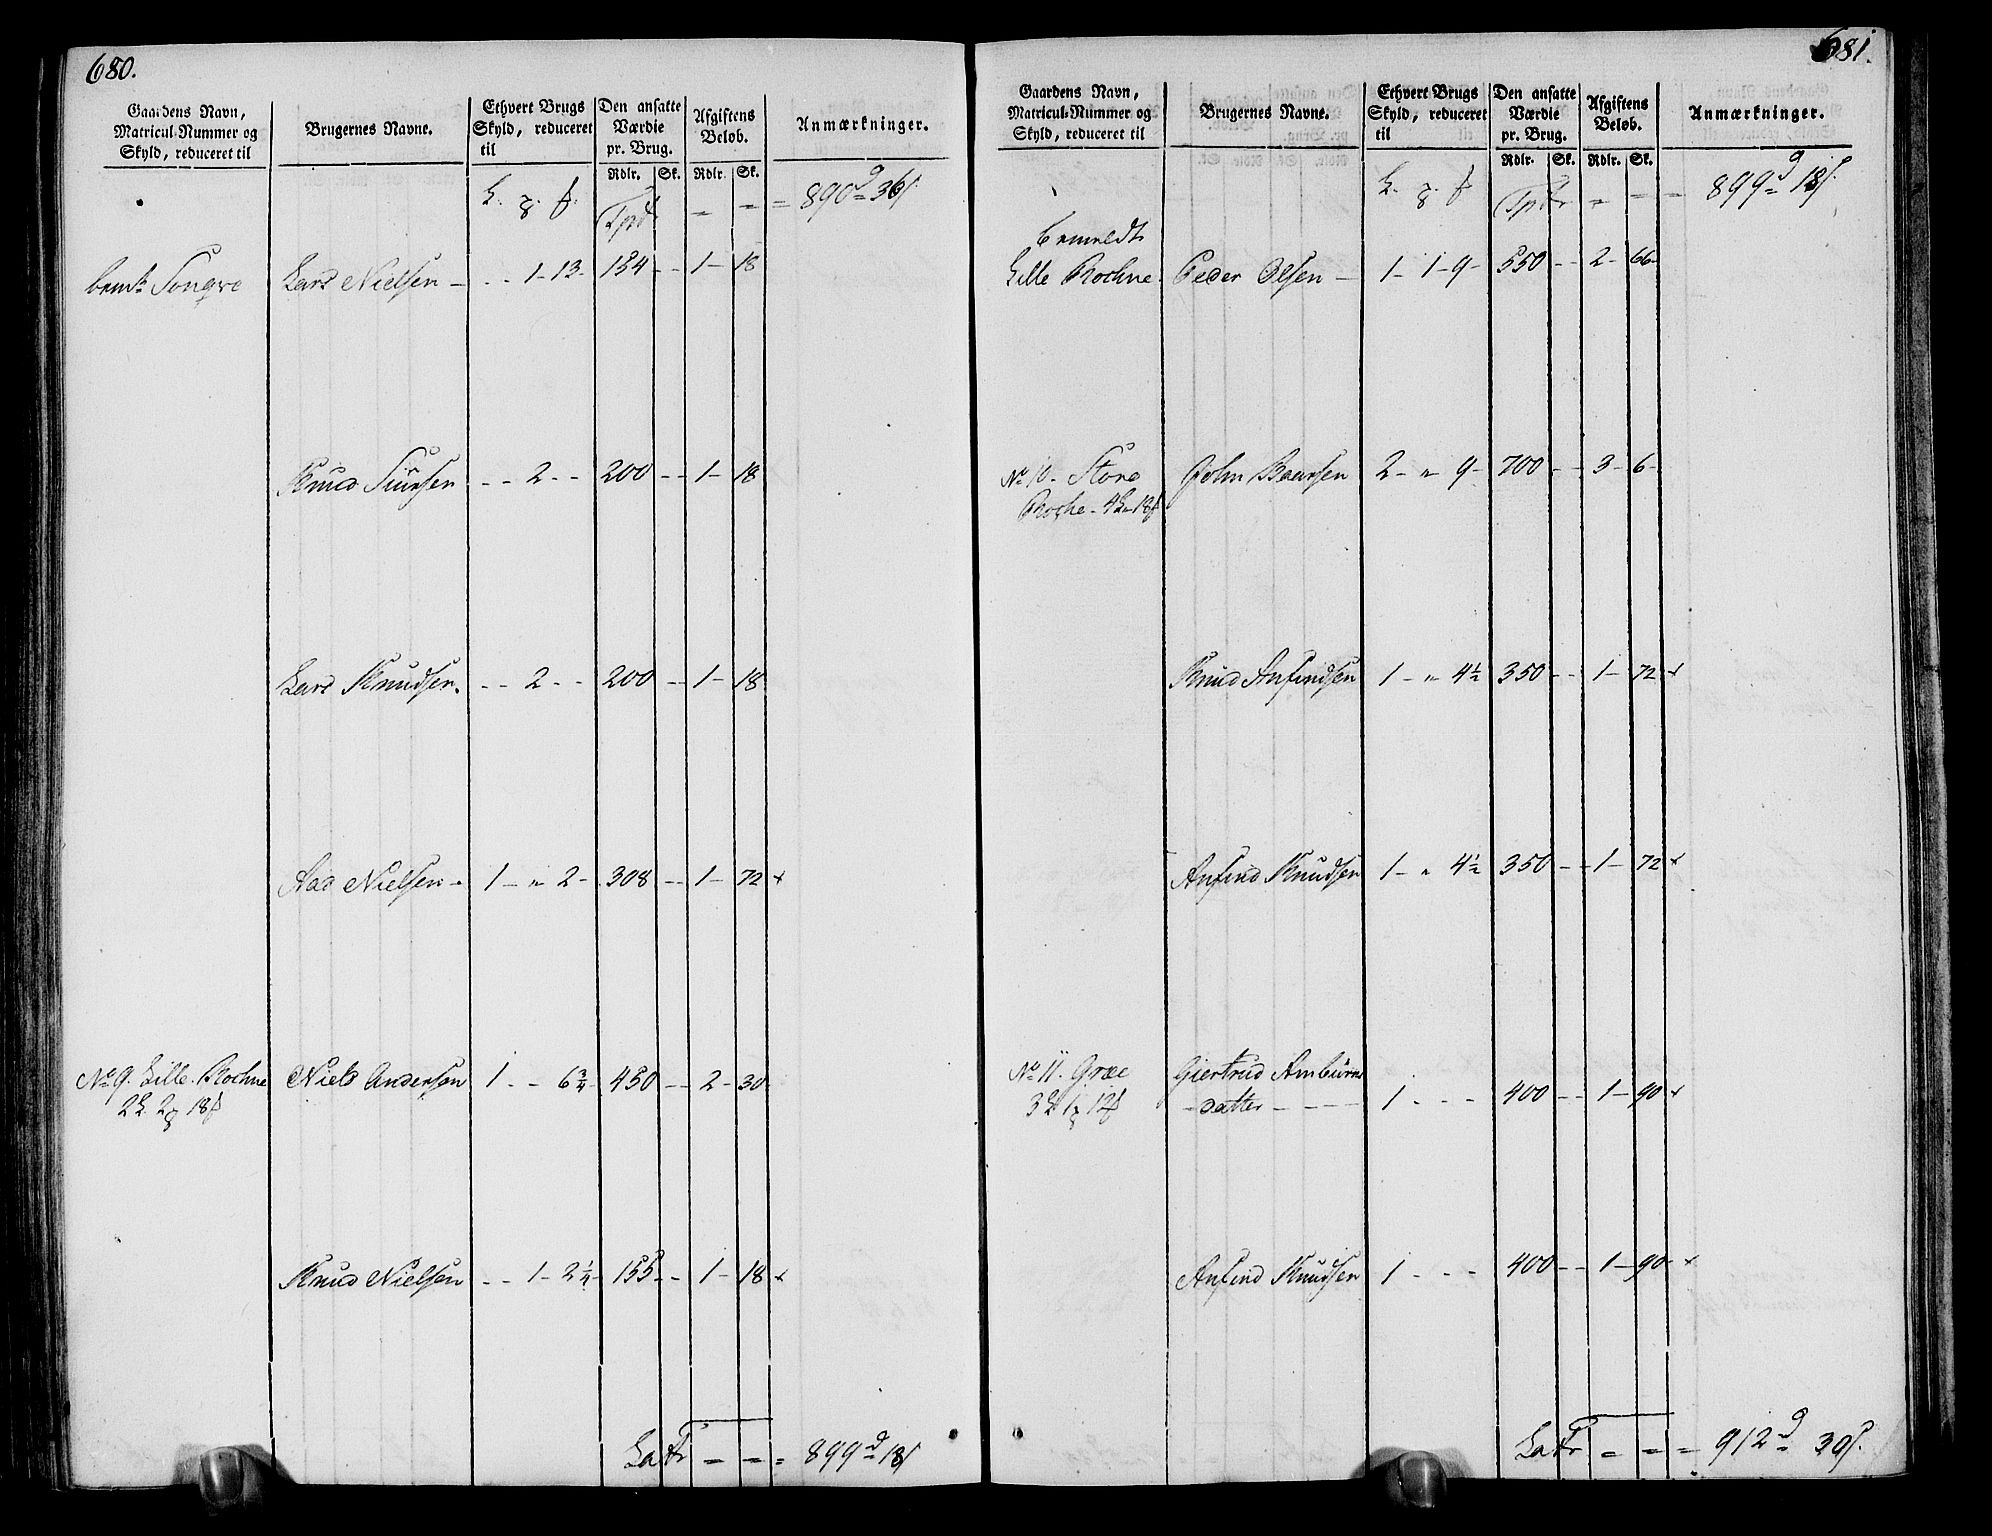 680.
Gaardens Navn, Matricul-Nummer og Skyld, reduceret til
Brugernes Navne.
Ethvert Brugs Skyld, reduceret til
Den ansatte Værdie pr. Brug.
Afgiftens Beløb.
Anmærkninger.
Rdlr. Sk. Rdlr. Sk.
Tprt - - = 890 d 36 s.
bem.te Songve Lars Nielsen - - - 1 - 13 - 154 - - 1 - 18
Knud Siursen - - 2 - - 200 - - 1 - 18
Lars Knudsen. - - 2 - - 200 - - 1 - 18
Aad Nielsen - 1 - " 2 - 308 - - 1 - 72 x
No 9. Lille Rochne Niels Andersen 1 - - 6 3/4 - 450 - - 2 - 30
2 L 2 g 18 s
Knud Nielsen - - 1 - 2 1/4 - 155 - - 1 - 18 x
Latr = = = 899 d 18 s
681.
Gaardens Navn, Matricul-Nummer og Skyld, reduceret til
Brugernes Navne.
Ethvert Brugs Skyld, reduceret til
Den ansatte Værdie pr. Brug.
Afgiftens Beløb.
Anmærkninger.
Rdlr. Sk. Rdlr. Sk.
Tprtr = - - 899 d 18 s.
bemeldte
Lille Rochne - Peder Olsen - 1 - 1 - 9 - 550 - - 2 - 66 -
No 10 - Store John Baarsen 2 - " 9 - 700 - - 3 - 6 -
Roche - 4 L - 18 s
Knud Anfindsen 1 - " 4 1/2 350 - - 1 - 72 x
Anfind Knudsen 1 - " 4 1/2 350 - - 1 - 72 x
No 11. Græe Giertrud
3 L 1 g 12 s - datter - - - - 1 - - - 400 - - 1 - 90 x
Anfind Knudsen 1 - - - 400 - - 1 - 90 - x
Latr = = = 912 d 30 s.